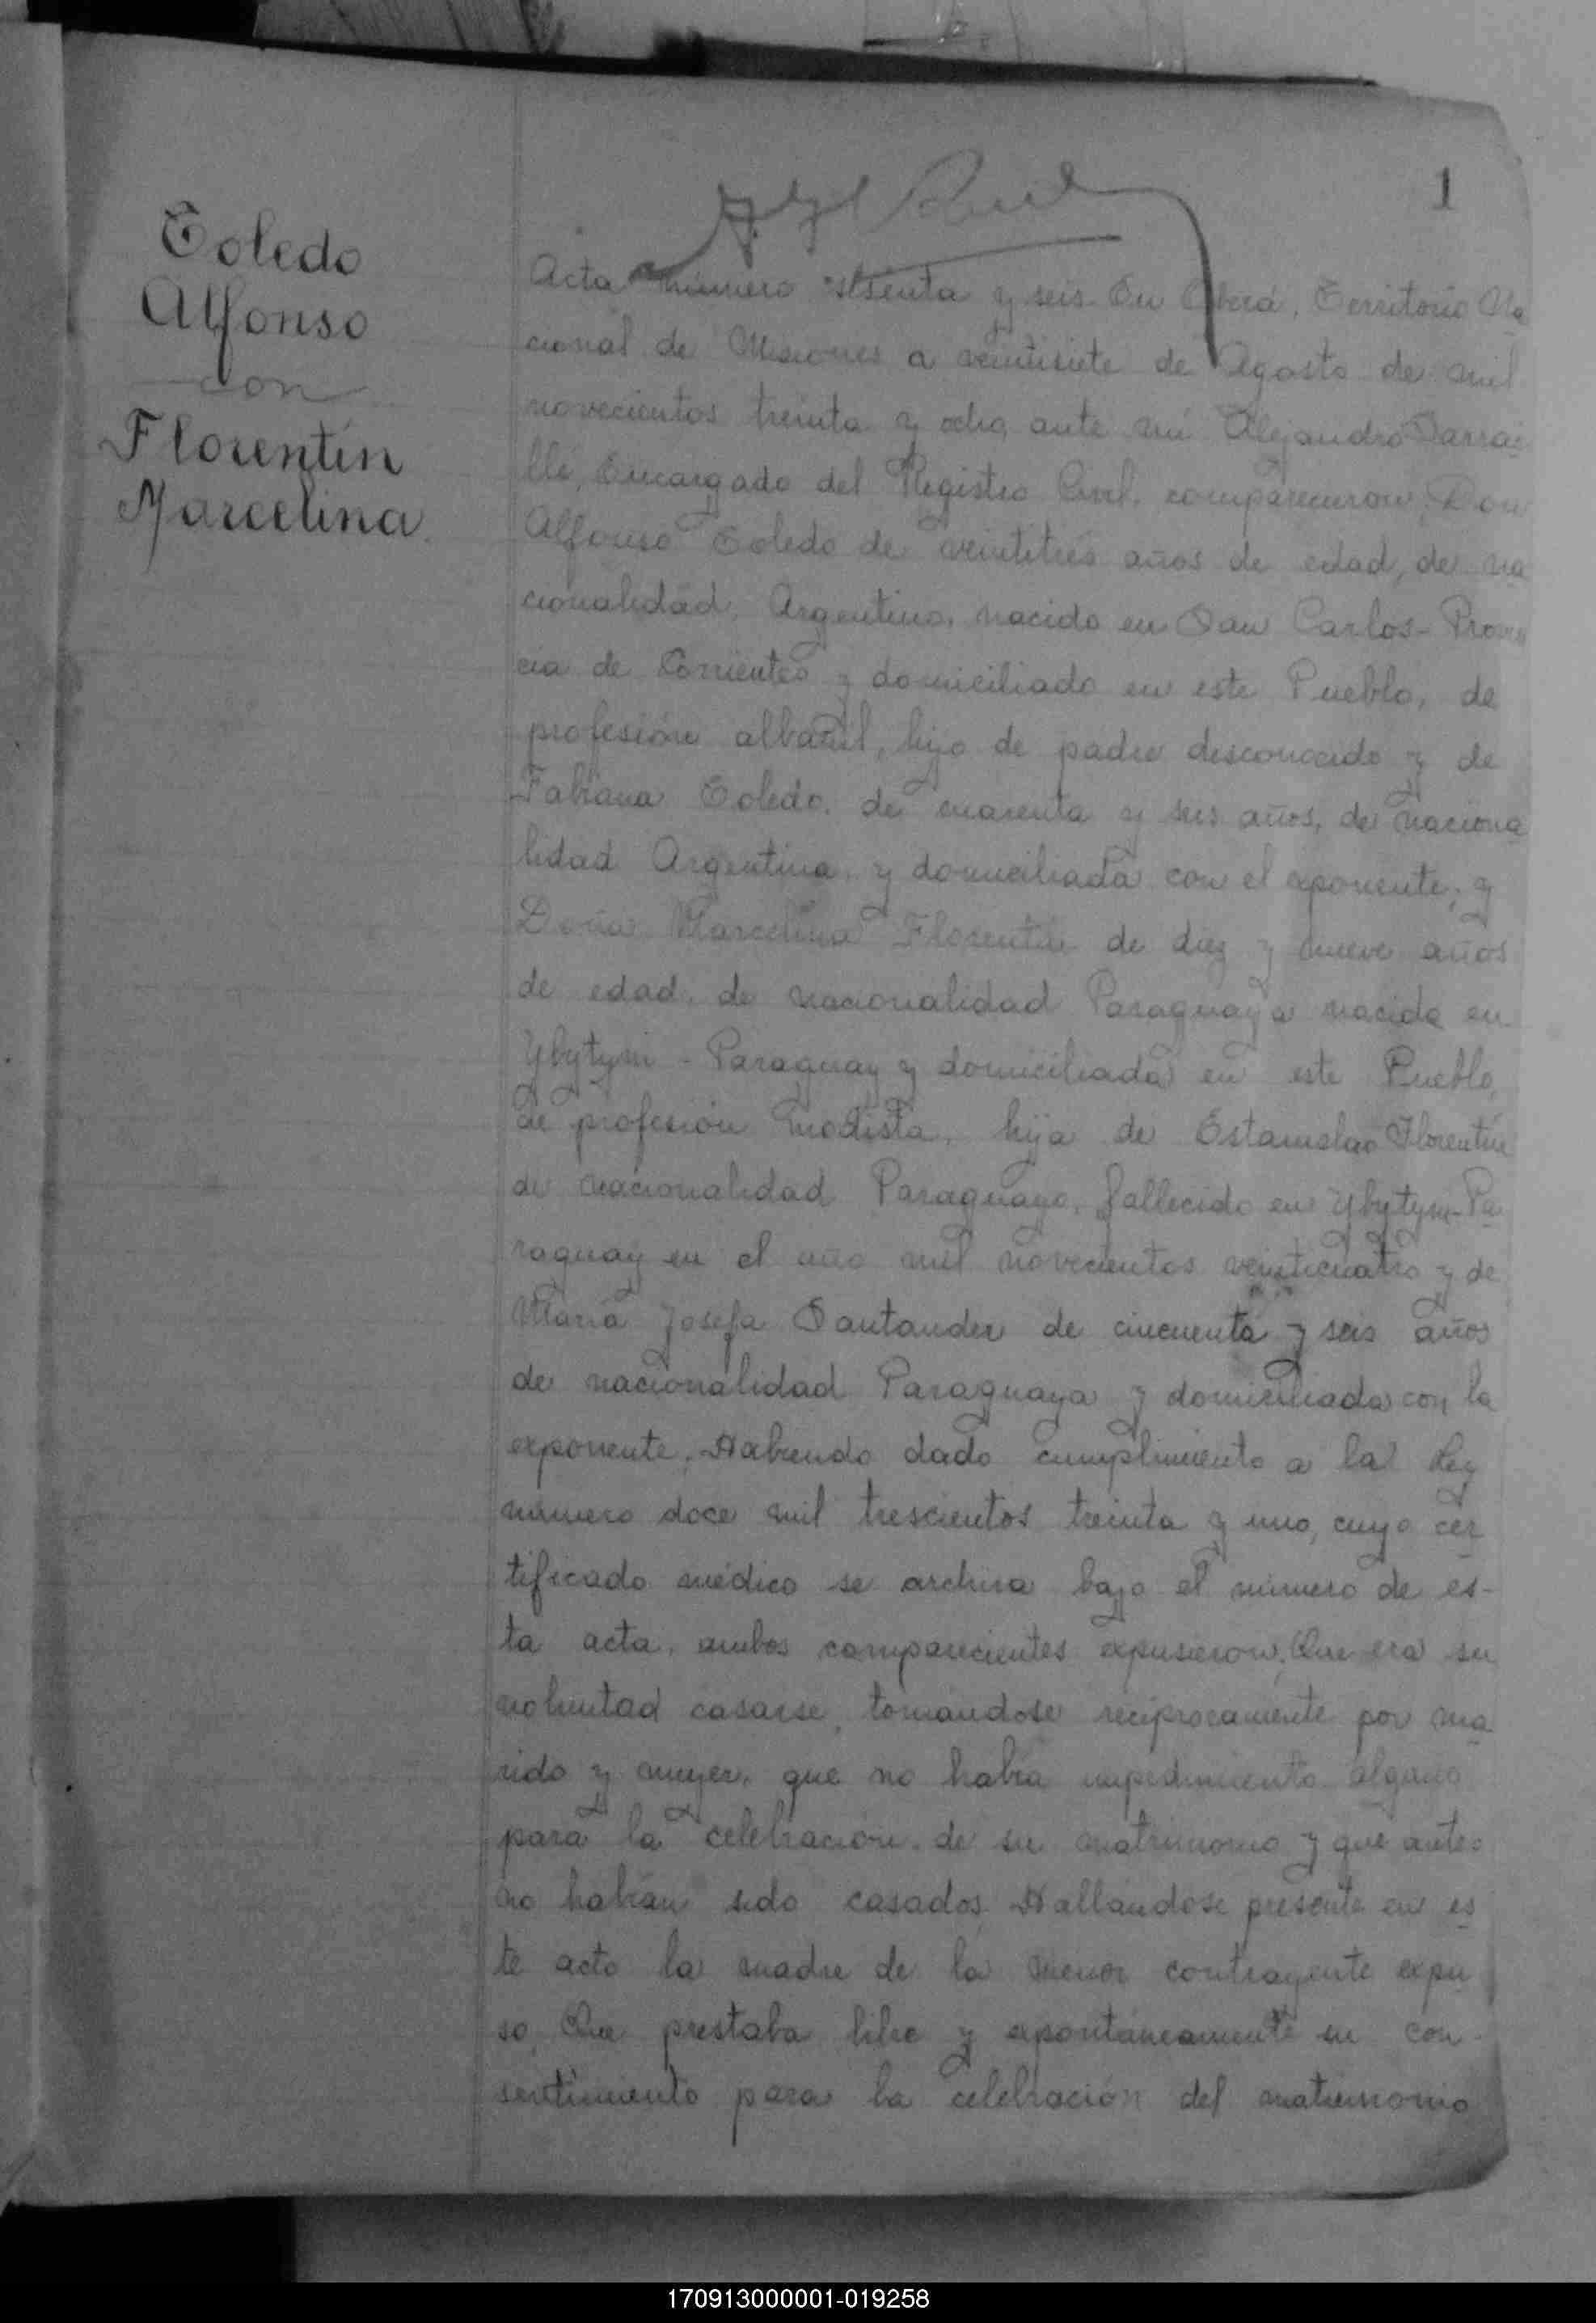 1
Toledo
Alfonso
con
Florentín
Marcelina.
Acta número sesenta y seis. En Oberá, Territorio Na
cional de Misiones a veintisiete de Agosto de mil
novecientos treinta y ocho, ante mí Alejandro
Encargado del Registro Civil, comparecieron, Don
Alfonso Toledo de veintitrés años de edad, de na
cionalidad, Argentino, nacido en San Carlos - Provin
cia de Corrientes y domiciliado en este Pueblo, de
profesión albañil, hijo de padre desconocido y de
Fabiana Toledo, de cuarenta y seis años, de naciona
lidad Argentina y domiciliada con el exponente; y
Doña Marcelina Florentín de diez y nueve años
de edad, de nacionalidad Paraguaya nacida en
Ybytymi - Paraguay y domiciliada en este Pueblo,
de profesión modista, hija de Estanislao Florentín
de nacionalidad Paraguayo, fallecido en Ybytymi - Pa
raguay en el año mil novecientos veinticuatro y de
María Josefa Santander de cincuenta y seis años
de nacionalidad Paraguaya y domiciliada con la
exponente. Habiendo dado cumplimiento a la Ley
número doce mil trescientos treinta y uno, cuyo cer
tificado médico se archiva bajo el número de es-
ta acta, ambos comparecientes expusieron: Que era su
voluntad casarse, tomandose reciprocamente por ma
rido y mujer, que no había impedimento alguno
para la celebración de su matrimonio y que antes
no habían sido casados. Hallándose presente en es
te acto la madre de la menor contrayente expu
so: Que prestaba libre y espontáneamente su con-
sentimiento para la celebración del matrimonio
170913000001-019258